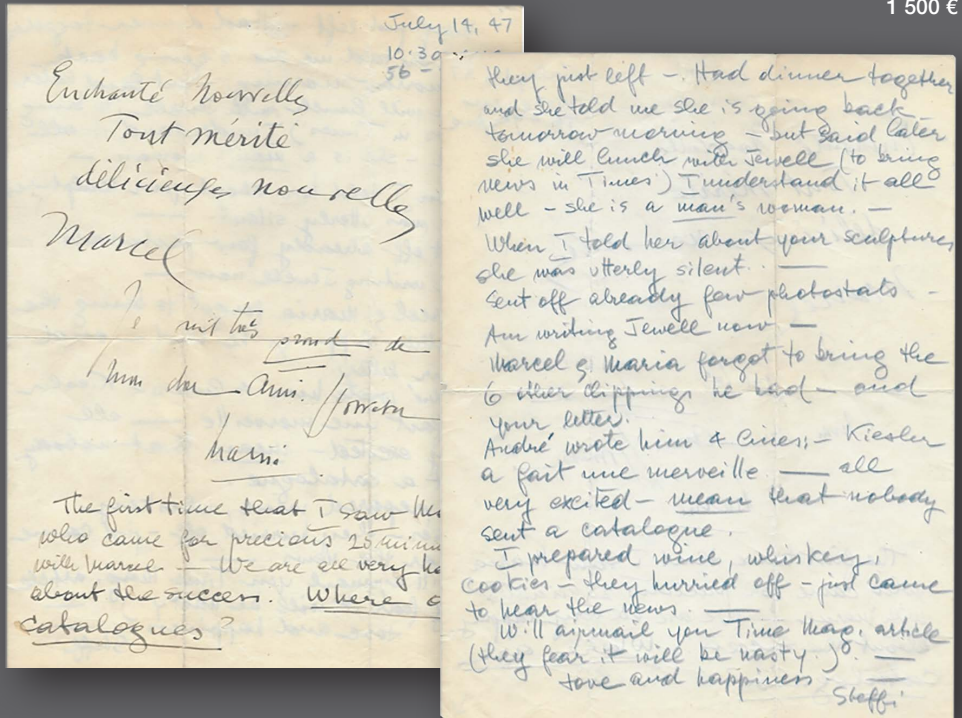 1 500 €
July 14, 47
10.30
56 -
Enchanté Nouvelles
Tout mérité
délicieuses nouvelles
Marcel
suis très proud de
mon cher Ami.
Maria
The first time that I saw
who came for precious 20 minu
with Marcel - We are all very ha
about the success. Where a
catalogues?
they just left -. Had dinner together
and she told me she is going back
tomorrow morning - but said later
she will lunch with Jewell (to bring
news in Times) I understand it all
well - she is a man's woman. -
When I told her about your sculptures
she was utterly silent. —
Sent off already few photostats -
Am writing Jewell now —
Marcel & Maria forgot to bring the
6 other clippings he had - and
your letter.
André wrote him 4 lines; - Kiesler
a fait une merveille. — all
very excited - mean that nobody
sent a catalogue.
I prepared wine, whiskey,
cookies - they hurried off - just came
to hear the news. —
Will airmail you Time Mag. article
(they fear it will be nasty.) —
Love and happiness
Steffi